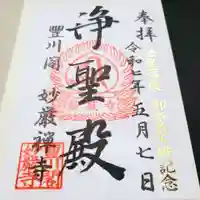 奉拝
令和七年五月七日
記念
浄聖殿
豐川閣
妙厳禅寺